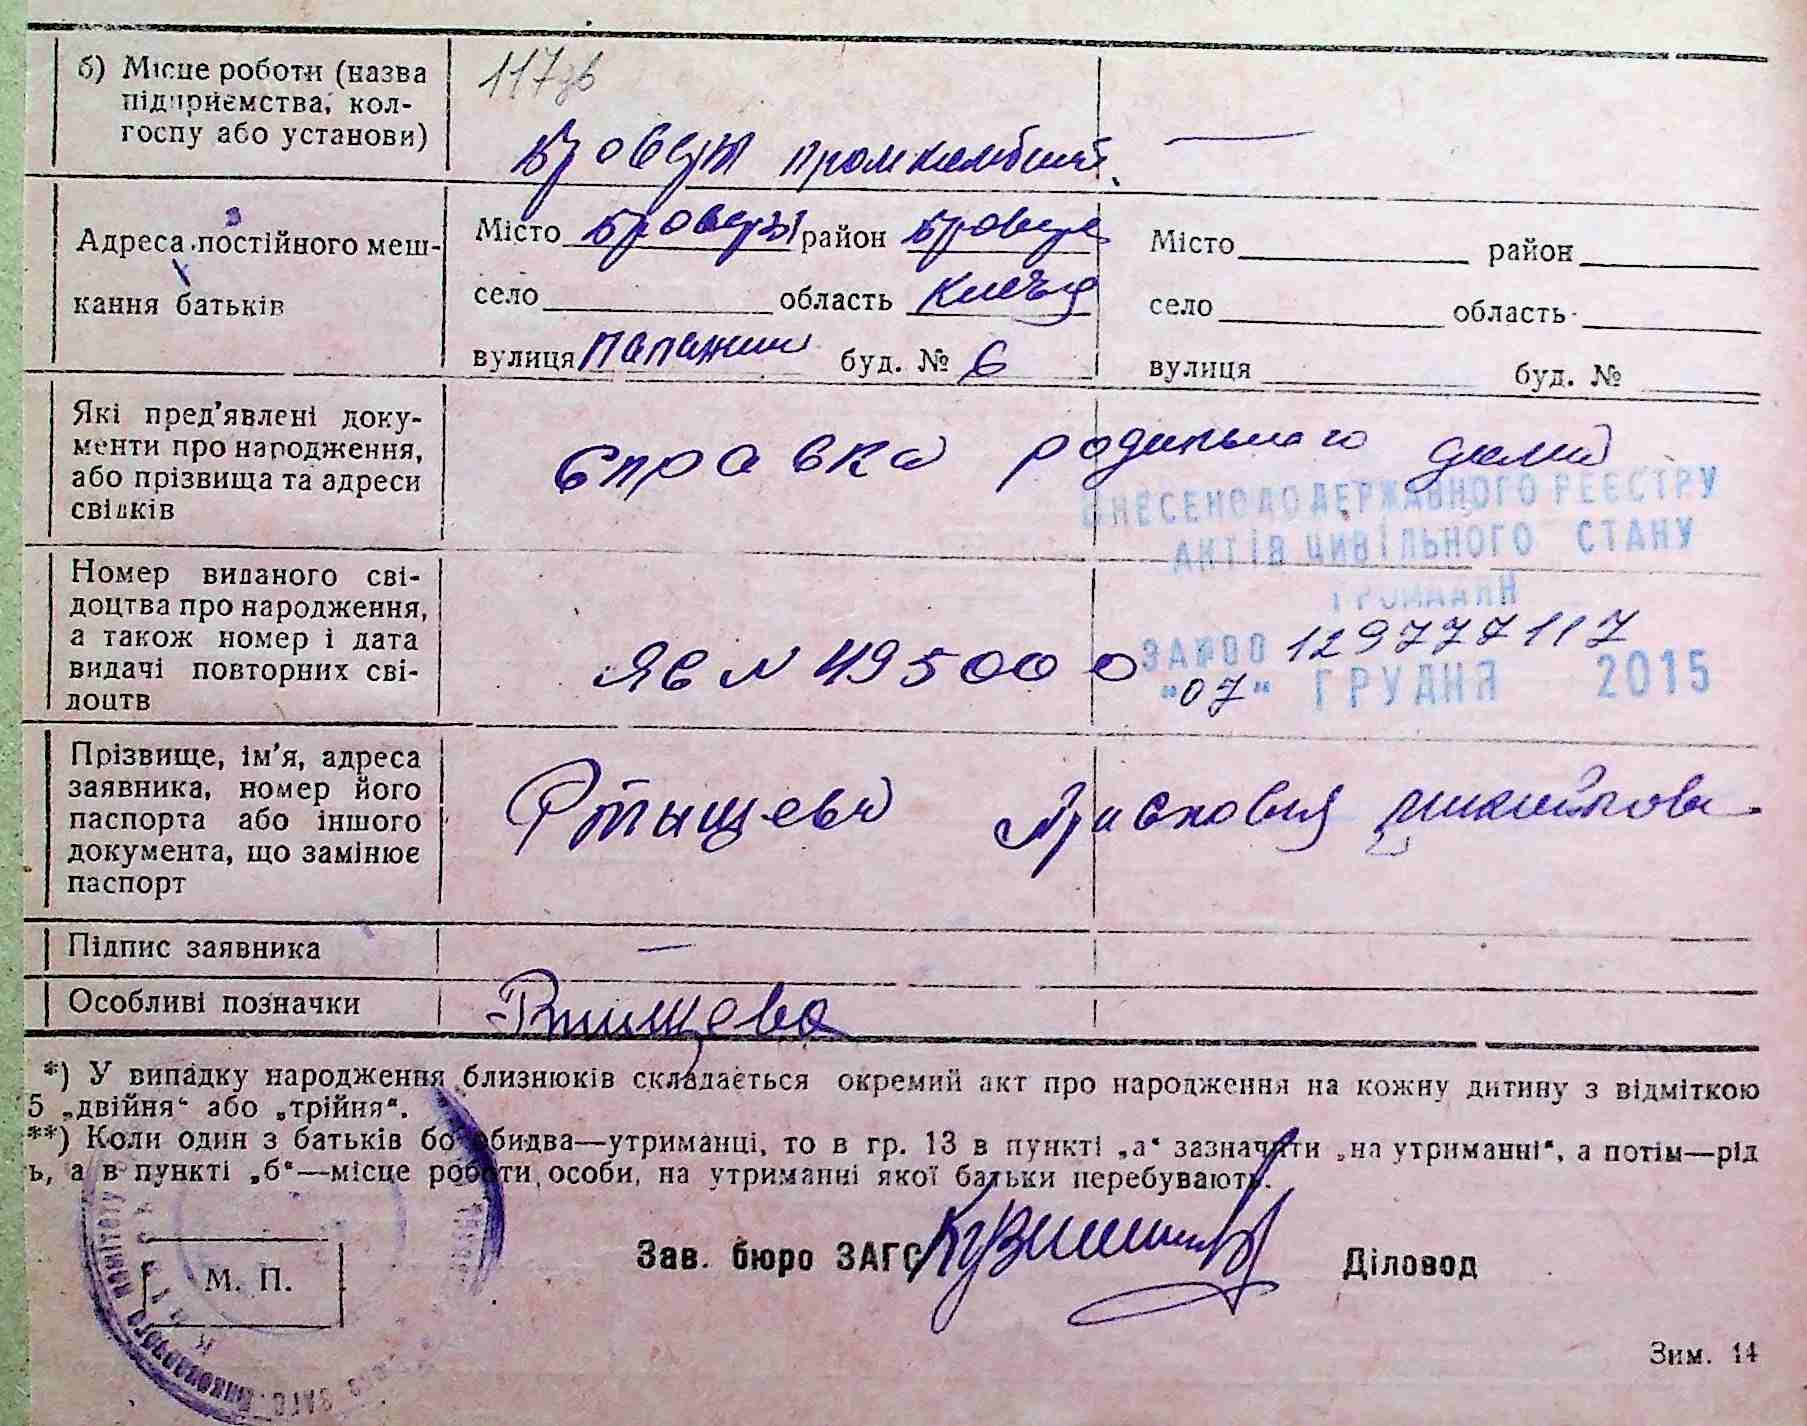 б) Місце роботи (назва
підприємства, кол-
госпу або установи)
117
Бровары промкомбинат.
Адреса постійного меш-
кання батьків
Місто Бровары район Бровар
Місто район
село область Киевск
село область
вулиця буд. № 6
вулиця буд. №
Які пред'явлені доку-
менти про народження,
або прізвища та адреси
свідків
Справка родильного дома
ВНЕСЕНО ДО ДЕРЖАВНОГО РЕЄСТРУ
АКТІВ ЦИВІЛЬНОГО СТАНУ
ГРОМАДЯН
Номер виданого сві-
доцтва про народження,
а також номер і дата
видачі повторних сві-
доцтв
ЯБ N 495000
ЗА №00 129777117
"07" ГРУДНЯ 2015
Прізвище, ім'я, адреса
заявника, номер його
паспорта або іншого
документа, що замінює
паспорт
Ртыщева
Підпис заявника
Особливі позначки
Ртищева
*) У випадку народження близнюків складається окремий акт про народження на кожну дитину з відміткою
5 „двійня“ або „трійня“.
**) Коли один з батьків бо обидва—утриманці, то в гр. 13 в пункті „а“ зазначити „на утриманні“, а потім—рід
ь, а в пункті „б“—місце роботи особи, на утриманні якої батьки перебувають.
Зав. бюро ЗАГС
Діловод
М. П.
Зим. 14